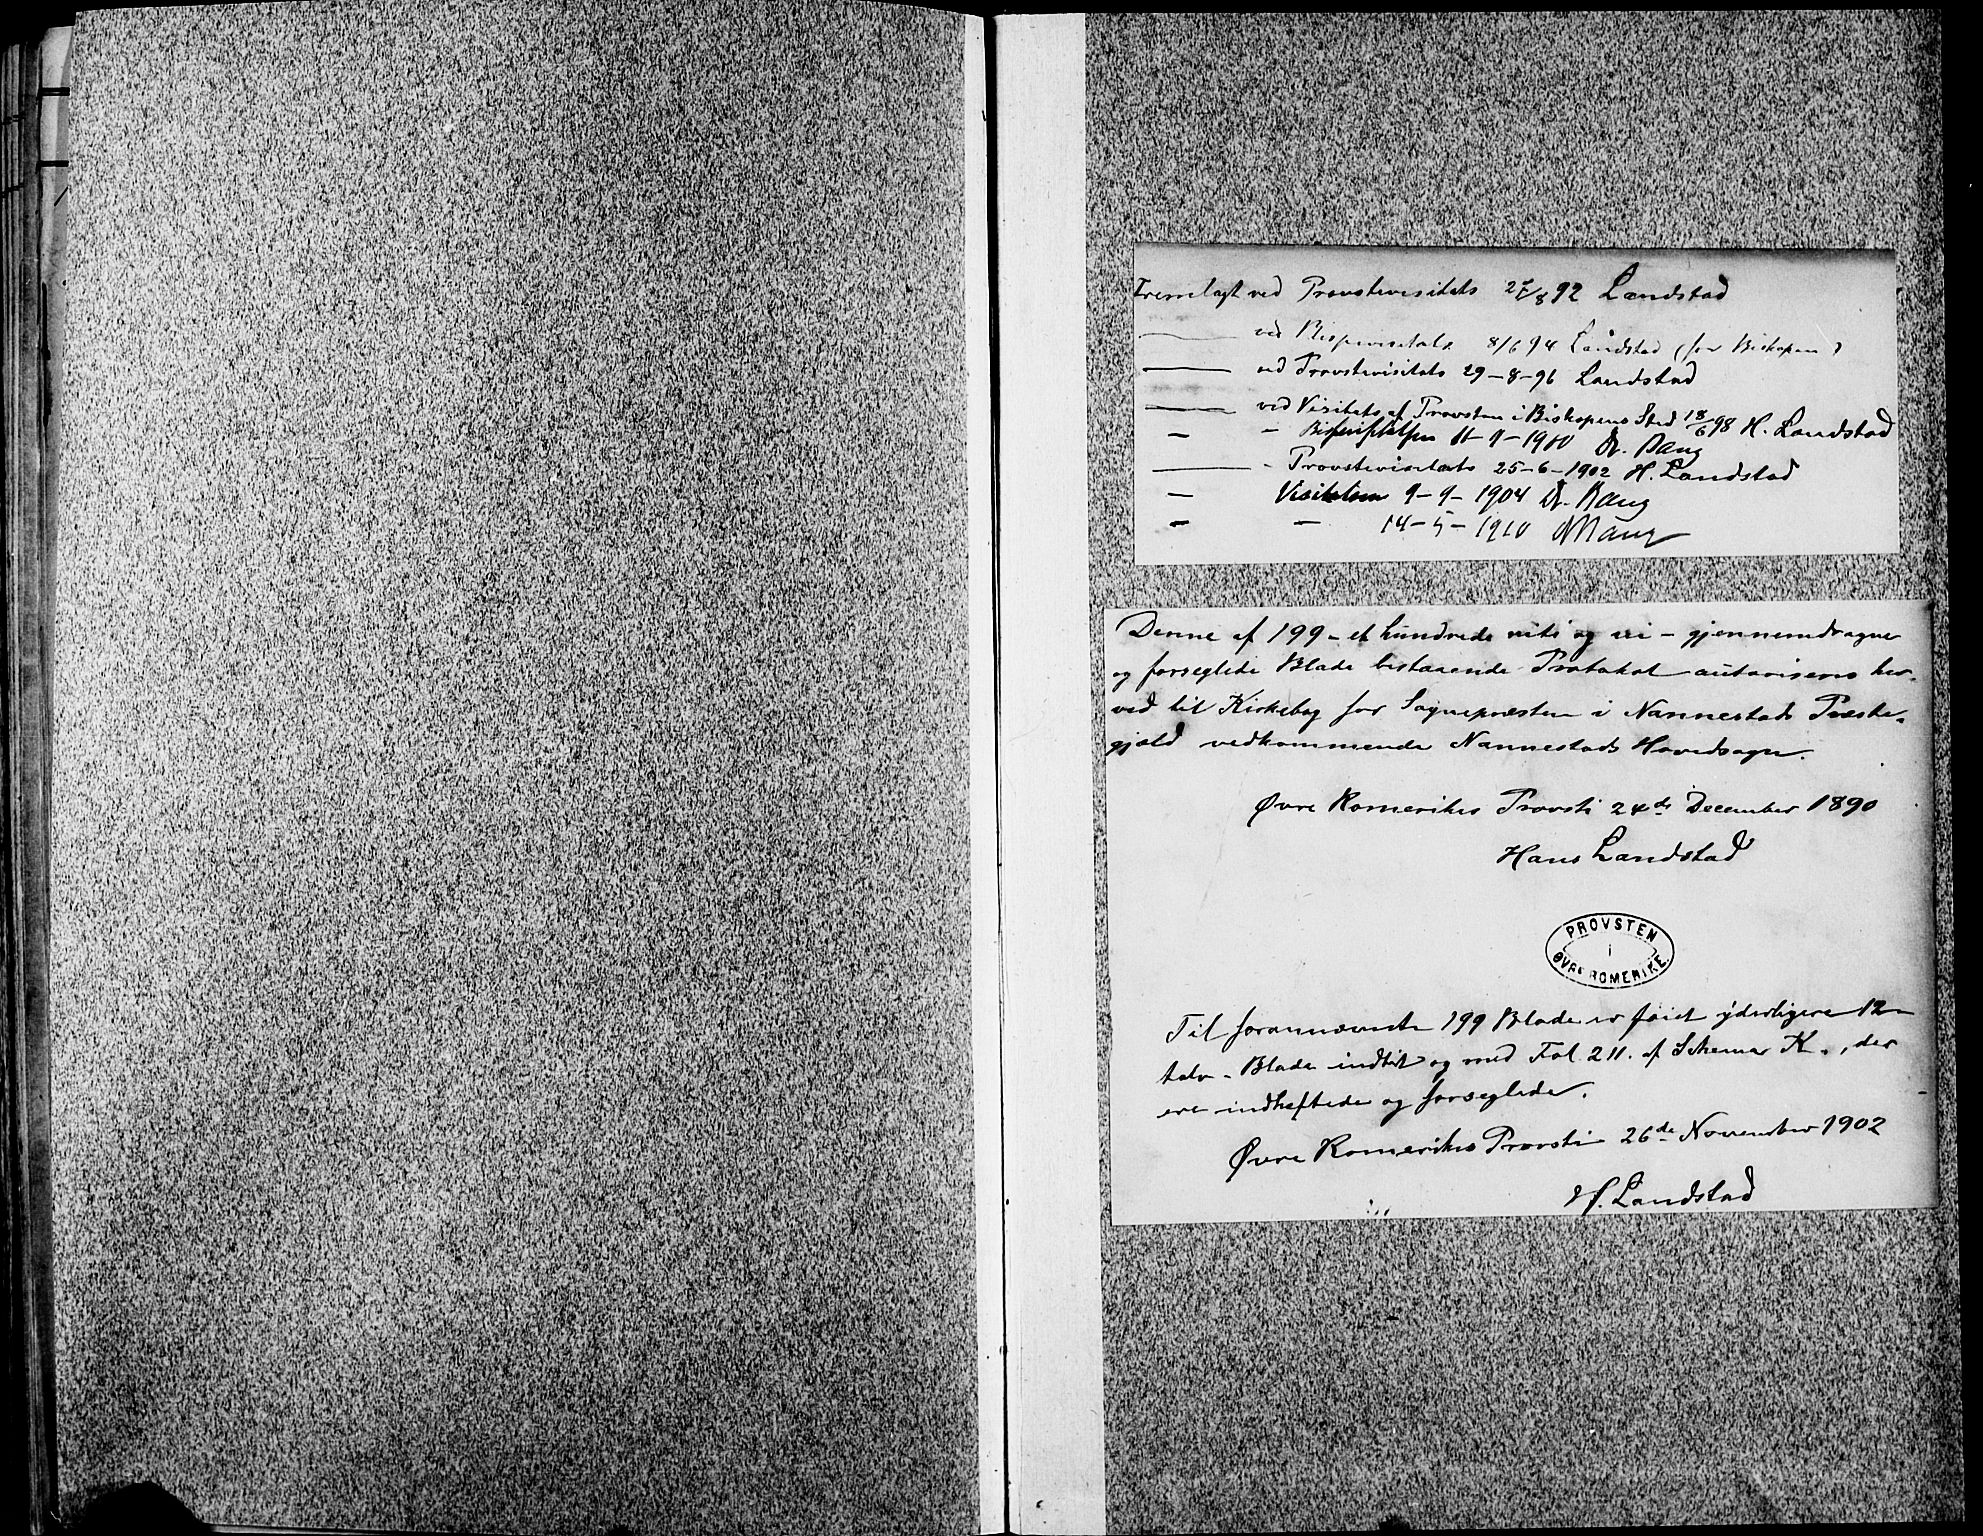 Fremlagt ved Provstevisitats 27/8 92 Landstad
——— ved Bispevisitats 8/6 94 Landstad (for Biskopen)
——— ved Provstevisitats 29-8-96 Landstad
——— ved Visitats af Provsten i Biskopens Sted 18/6 98 H. Landstad
— - 11-9-1900 Dr. Bang
——— - Provstevisitats 25-6-1902 H. Landstad
— Visitatsen 9-9-1904 Dr. Bang
— — 14-5-1910
Denne af 199 - et hundrede niti og ni - gjennemdragne
og forseglede Blade bestaaende Protokol autoriseres her-
ved til Kirkebog for Sognepræsten i Nannestads Præste-
gjæld vedkommende Nannestads Hovedsogn.
Øvre Romerikes Provsti 24de December 1890
Hans Landstad
PROVSTEN
i
ØVRE ROMERIKE.
Til forannævnte 199 Blade er føiet yderligere 12 -
tolv - Blade indtil og med Fol 211. af Schema K., der
ere indheftede og forseglede.
Øvre Romerikes Provsti 26de November 1902
H. Landstad